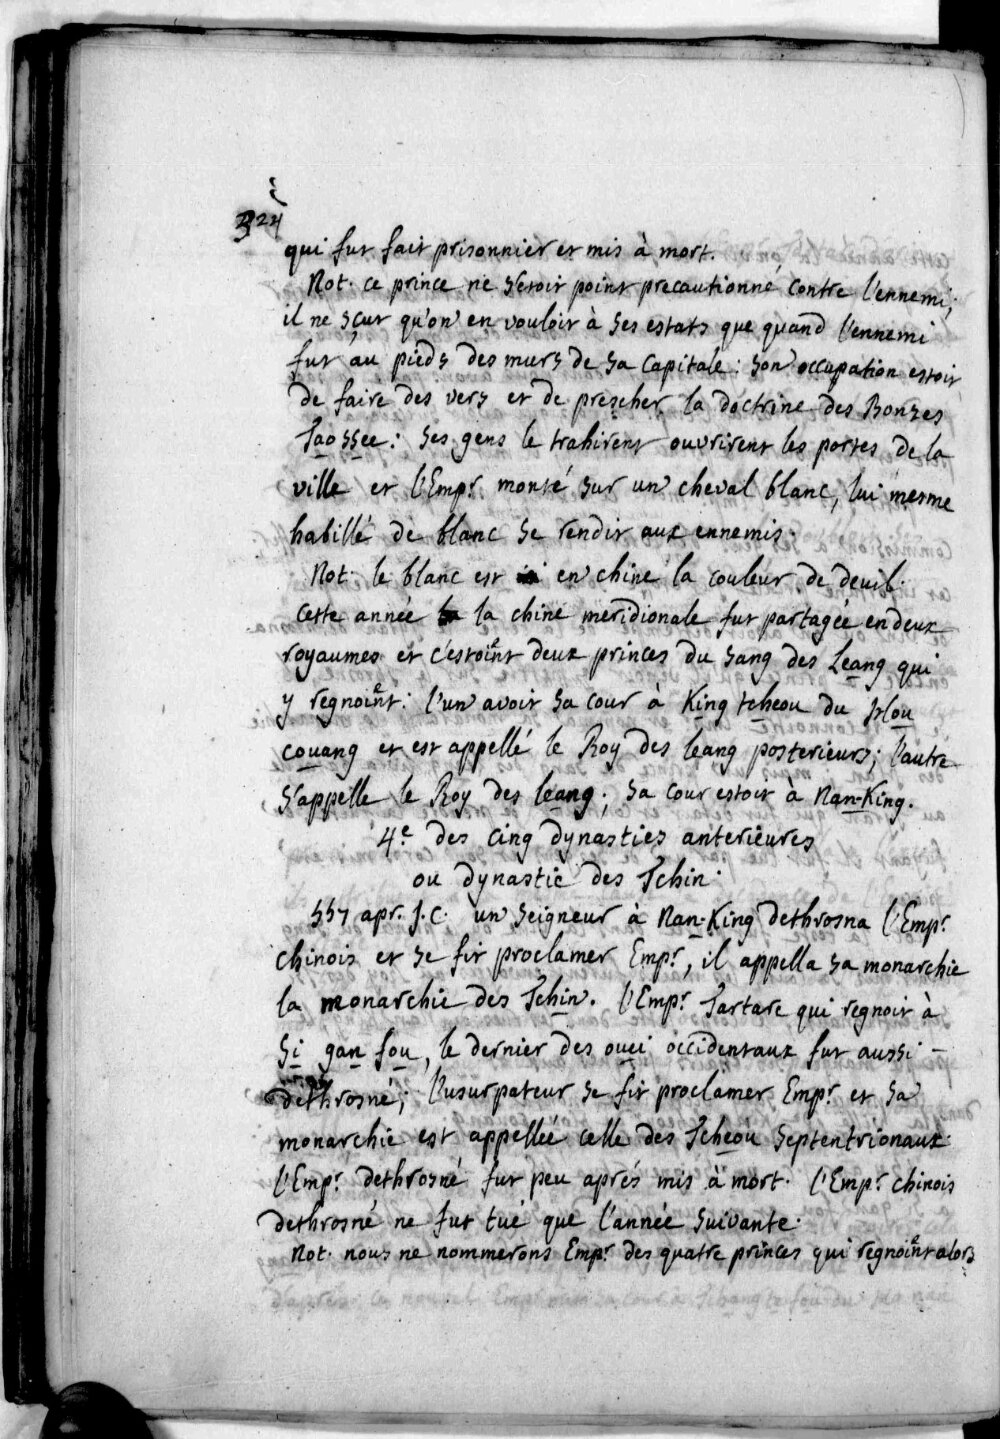 324
qui fut fait prisonnier et mis à mort.
Not. ce prince ne s'etoit point precautionné contre l'ennemi;
il ne sçut qu'on en vouloit à ses estats que quand l'ennemi
fut au pieds des murs de sa capitale: son occupation estoit
de faire des vers et de prescher la doctrine des Bonzes
Taossee: ses gens le trahirent ouvrirent les portes de la
ville et l'Empr. monté sur un cheval blanc, lui mesme
habillé de blanc se rendit aux ennemis.
Not. le blanc est en chine la couleur de deuil.
cette année la chine meridionale fut partagée en deux
royaumes et c'estoint deux princes du sang des Leang qui
y regnoint: l'un avoit sa cour à King tcheou du Hou
couang et est appellé le Roy des leang posterieurs; l'autre
s'appelle le Roy des leang; sa cour estoit à Nan-King.
4e des cinq dynasties anterieures
ou dynastie des Tchin.
557 apr. J.C. un seigneur à Nan-King dethrosna l'Empr.
chinois et se fit proclamer Empr., il appella sa monarchie
la monarchie des Tchin. l'Empr. Tartare qui regnoit à
Si gan fou, le dernier des ouei occidentaux fut aussi
dethrosné; l'usurpateur se fit proclamer Empr. et sa
monarchie est appelleé celle des Tcheou septentrionaux.
l'Empr. dethrosné fut peu aprés mis à mort. l'Empr. chinois
dethrosné ne fut tué que l'année suivante.
Not. nous ne nommerons Empr. des quatre princes qui regnoint alors